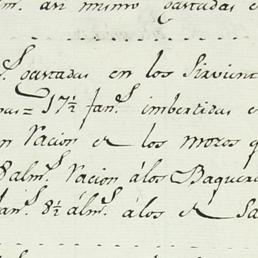 m.s an mismo gastadas e
s gastadas en los Sirvient
as = 17½ fan.s imbertidas e
n Racion de los mozos q
8 alm.s Racion á los Baquer
fan.s 8½ álm.s á los de Sa